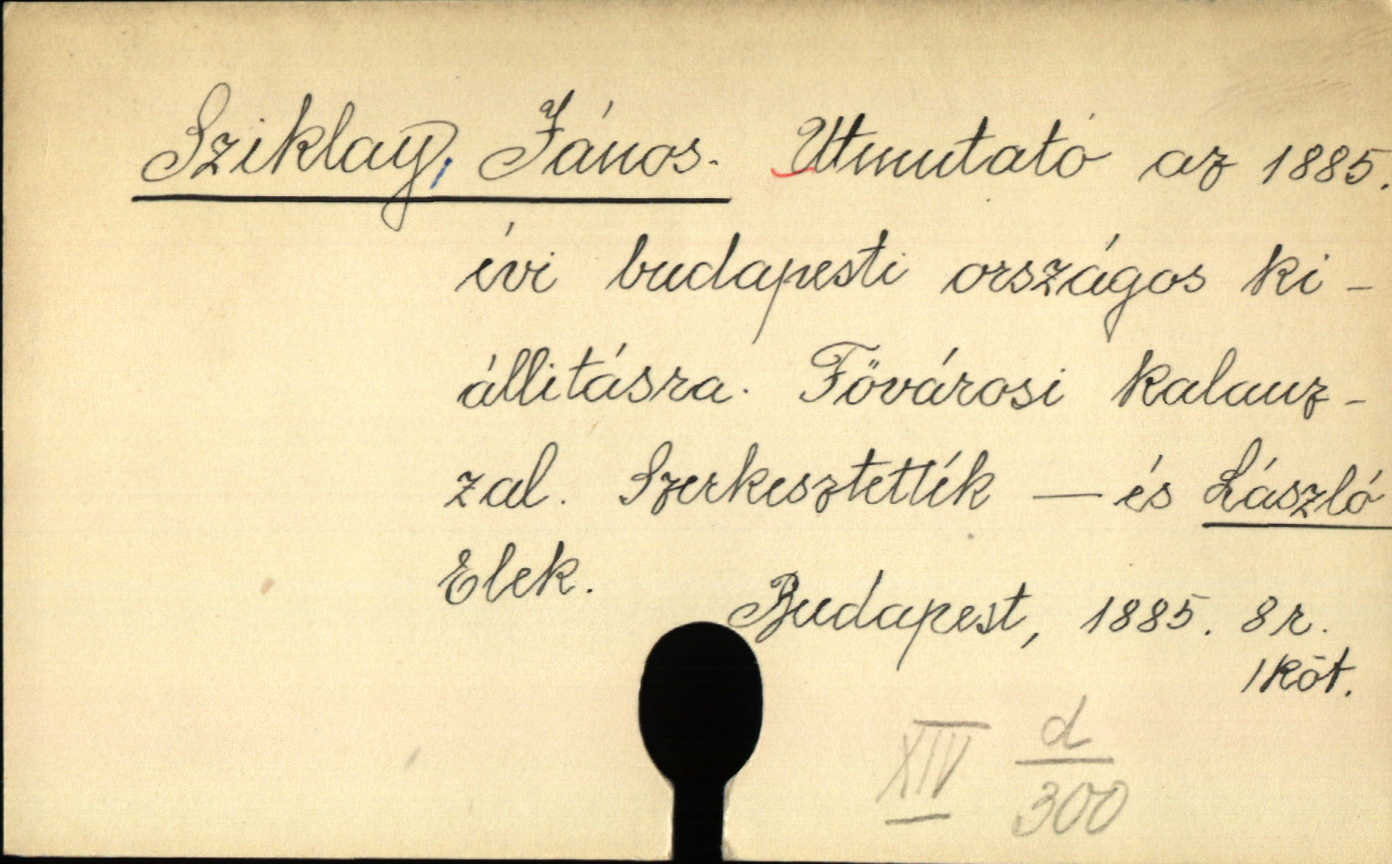 Sziklay, János. Utmutató az 1885.
évi budapesti országos ki-
állitásra. Fővárosi kalauz-
zal. Szerkesztették — és László
Elek.
Budapest, 1885. 8r.
1 köt.
XIV d/300